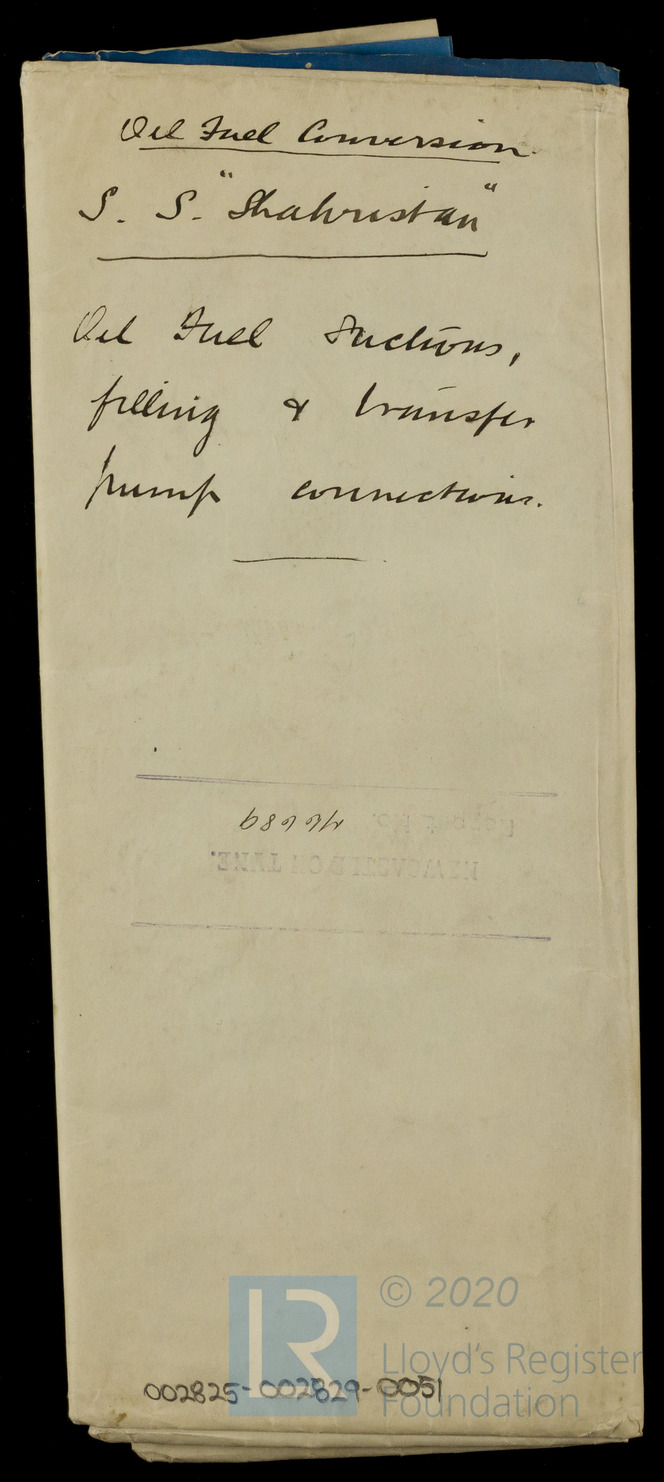 Oil Fuel Conversion.
S. S. "Shahristan"
Oil Fuel Suctions,
filling & transfer
pump connections.
Report No.
NEWCASTLE ON TYNE.
© 2020
LR
Lloyd's Register
Foundation
002825-002829-0051